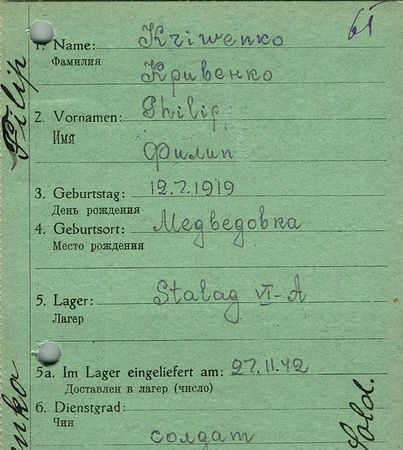 61
1. Name: Kriwenko
Фамилия
Кривенко
2. Vornamen: Philip
Имя
Филип
3. Geburtstag: 12.7.1919
День рождения
4. Geburtsort: Медведовка
Место рождения
5. Lager: Stalag VI-A
Лагер
5a. Im Lager eingeliefert am: 27.11.42
Доставлен в лагер (число)
6. Dienstgrad:
Чин
солдат
Filip
enko
Sold.